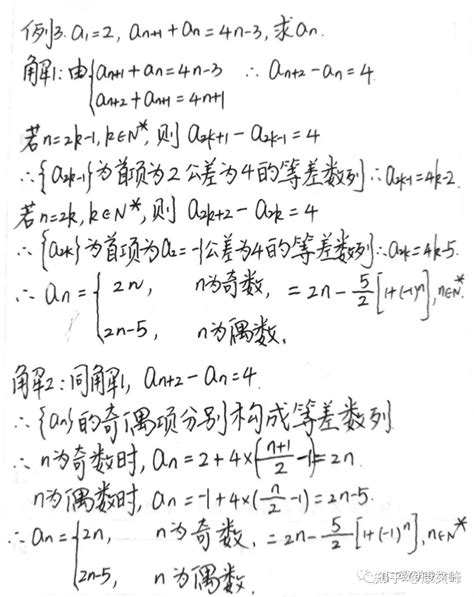 例3. a₁=2, aₙ₊₁+aₙ=4n-3, 求aₙ.
解1: 由{aₙ₊₁+aₙ=4n-3 ∴ aₙ₊₂-aₙ=4.
aₙ₊₂+aₙ₊₁=4n+1
若n=2k-1, k∈N*, 则 a₂ₖ₊₁-a₂ₖ₋₁=4
∴{a₂ₖ₋₁}为首项为2公差为4的等差数列∴a₂ₖ₋₁=4k-2.
若n=2k, k∈N*, 则 a₂ₖ₊₂-a₂ₖ=4
∴{a₂ₖ}为首项为a₂=-1公差为4的等差数列∴a₂ₖ=4k-5.
∴ aₙ={2n, n为奇数, =2n-5/2[1+(-1)ⁿ], n∈N*.
2n-5, n为偶数.
解2: 同解1, aₙ₊₂-aₙ=4.
∴{aₙ}的奇偶项分别构成等差数列
∴ n为奇数时, aₙ=2+4×((n+1)/2-1)=2n.
n为偶数时, aₙ=-1+4×(n/2-1)=2n-5.
∴aₙ={2n, n为奇数, =2n-5/2[1+(-1)ⁿ], n∈N*
2n-5, n为偶数.
知乎